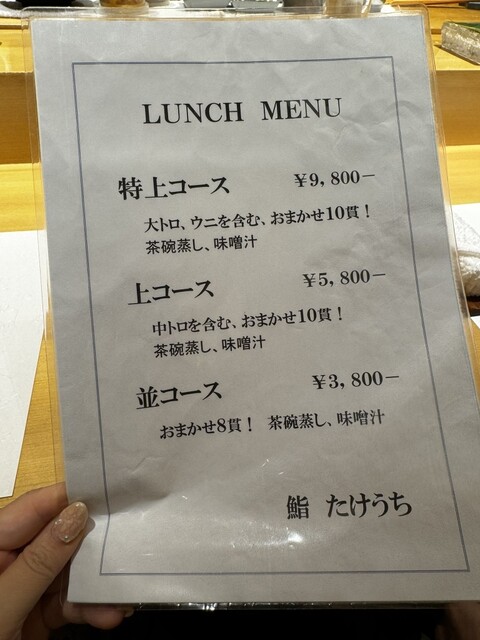 LUNCH MENU
特上コース ￥9,800－
大トロ、ウニを含む、おまかせ10貫！
茶碗蒸し、味噌汁
上コース ￥5,800－
中トロを含む、おまかせ10貫！
茶碗蒸し、味噌汁
並コース ￥3,800－
おまかせ8貫！ 茶碗蒸し、味噌汁
鮨 たけうち